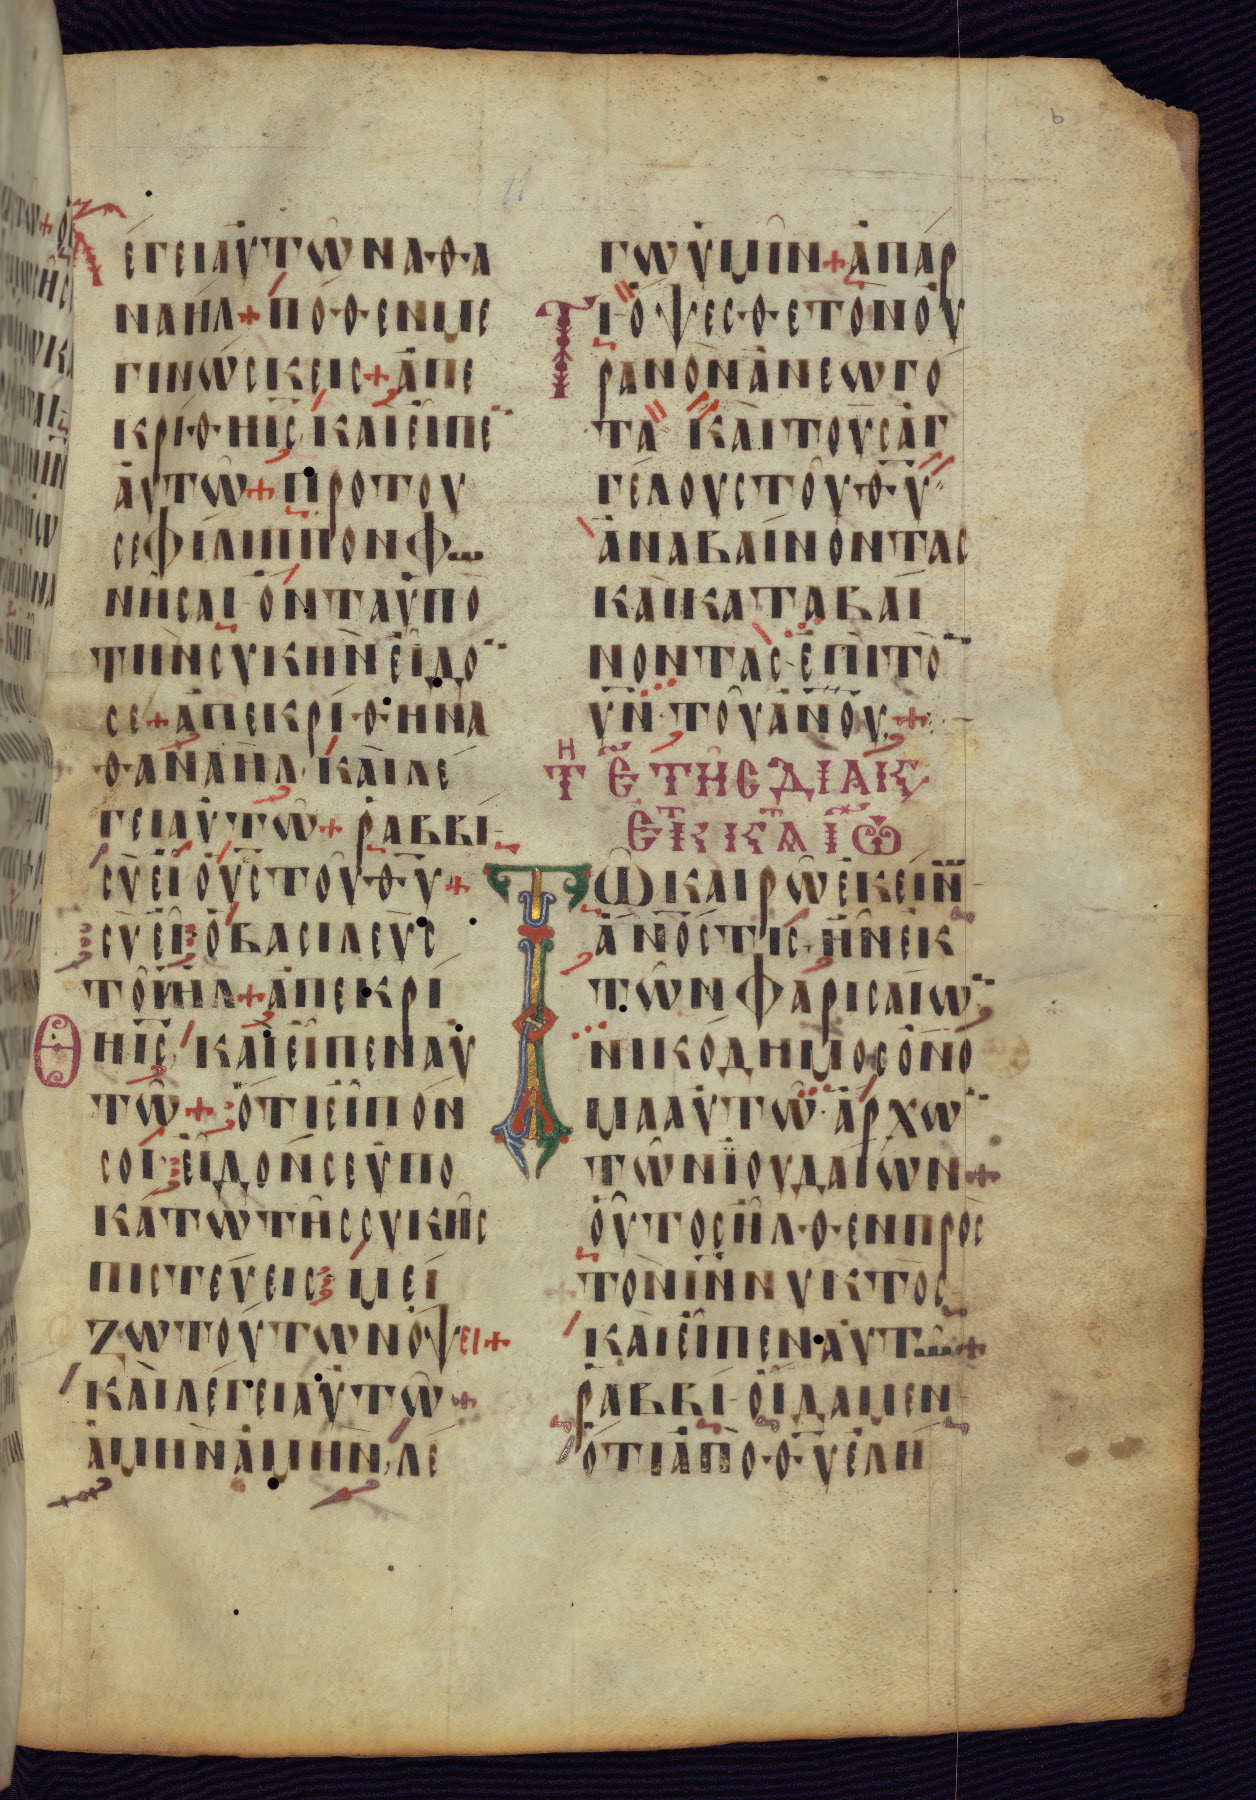 λέγει αὐτῶ Ναθα
ναήλ + πόθεν με
γινώσκεις + ἀπε
κρίθη ις καὶ εἶπε
αὐτῶ + πρὸ τοῦ
σε φίλιππον φω
νῆσαι ὄντα ὑπὸ
τὴν συκῆν εἶδό
σε + ἀπεκρίθη Να
θαναὴλ καὶ λέ
γει αὐτῶ + ῥαββὶ
σὺ εἶ ὁ υς τοῦ θυ +
σὺ εἶ ὁ βασιλεὺς
τοῦ ιηλ + ἀπεκρί
Θη ις καὶ εἶπεν αὐ
τῶ + ὅτι εἶπόν
σοι εἶδόν σε ὑπο
κάτω τῆς συκῆς
πιστεύεις μεί
ζω τούτων ὄψει +
καὶ λέγει αὐτῶ +
ἀμὴν ἀμὴν λέ
γω ὑμῖν + ἀπ' ἄρ
Τι ὄψεσθε τὸν οὐ
ρανὸν ἀνεωγό
τα καὶ τοὺς ἀγ
γέλους τοῦ θυ
ἀναβαίνοντας
καὶ καταβαί
νοντας ἐπὶ τὸ
υν τοῦ ανου +
τη ε τῆς διακ
ἐκ τ κατὰ ιω
Τῶ καιρῶ ἐκείν
ανος τις ἦν ἐκ
τῶν φαρισαίω
νικόδημος ὄνο
μα αὐτῶ ἄρχω
τῶν ἰουδαίων +
οὗτος ἦλθεν πρὸς
τὸν ιν νυκτὸς
καὶ εἶπεν αὐτῶ +
ῥαββὶ οἴδαμεν
ὅτι ἀπὸ θυ ἐλή